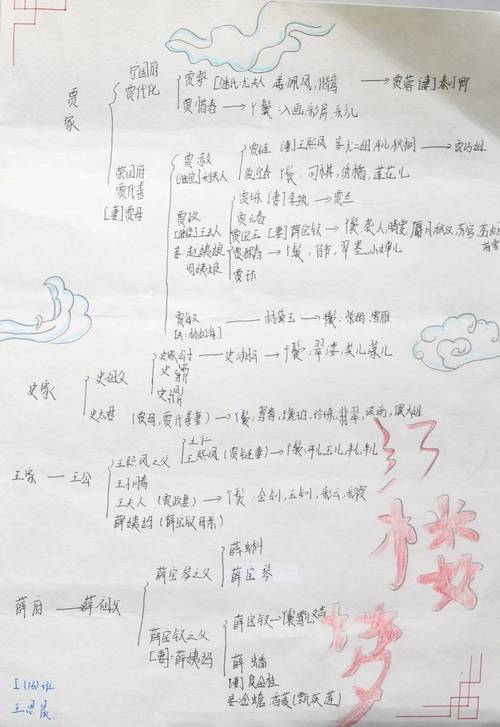 宁国府
贾代化
贾家
贾敬 [继氏:尤夫人 妾:佩凤,偕鸳 → 贾蓉 [妻]秦可卿
贾惜春 → 丫鬟:入画,彩屏,彩儿
荣国府
贾代善
[妻]贾母
贾赦
夫人
贾琏 [妻]王熙凤 妾尤二姐 秋桐 → 贾巧姐
贾迎春 丫鬟:司棋,绣橘,莲花儿
贾政
王夫人
妾:赵姨娘
周姨娘
贾珠 [妻]李纨 → 贾兰
贾元春
贾宝玉 [妻]薛宝钗 → 丫鬟,袭人,晴雯,麝月,秋纹
贾探春 → 丫鬟:侍书,翠墨,小蝉儿
贾环
贾敏
林黛玉 → 丫鬟:紫鹃,雪雁
史家
史祖父
史湘云 → 丫鬟:翠缕,葵儿
史鼐
史鼎
史太君 (贾母,贾代善妻) → 丫鬟,鸳鸯,珍珠,翡翠,玻璃,傻大姐
王家 王公
王熙凤之父
王仁
王熙凤 (贾琏妻) → 丫鬟:平儿
王子腾
王夫人 (贾政妻) → 丫鬟:金钏,玉钏,彩云,彩霞
薛姨妈 (薛宝钗母亲)
薛府 薛祖父
薛宝琴之父
薛蝌
薛宝琴
薛宝钗之父
[妻]:薛姨妈
薛宝钗 → 丫鬟
薛蟠
[妻]夏金桂
妾:金蟾,香菱(甄英莲)
红楼梦
1(16)班
王思